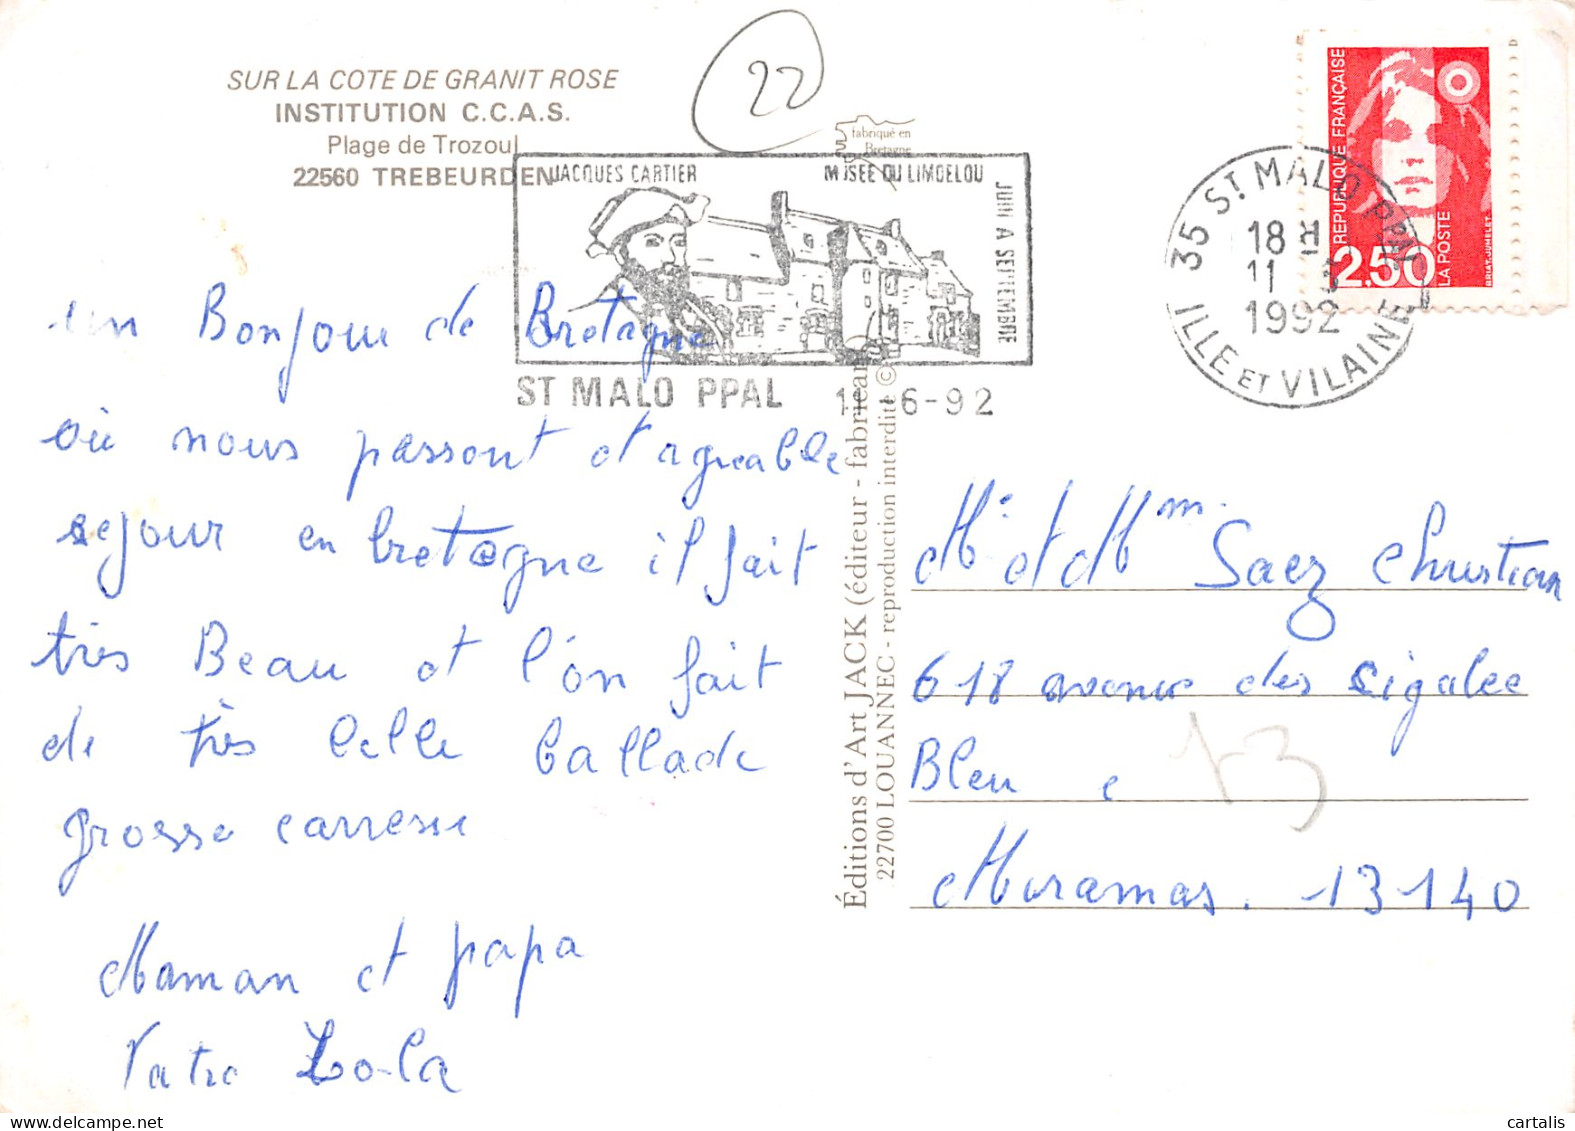 SUR LA COTE DE GRANIT ROSE
INSTITUTION C.C.A.S.
Plage de Trozoul
22560 TREBEURDEN
22
fabriqué en
Bretagne
JACQUES CARTIER MUSEE DU LIMOELOU
JUIN A SEPTEMBRE
ST MALO PPAL 11-6-92
35 ST MALO PPAL
18 H
11
1992
ILLE ET VILAINE
REPUBLIQUE FRANÇAISE
2.50
LA POSTE
BRIAT-JUMELET
un Bonjour de Bretagne
où nous passont et agreable
sejour en bretagne il fait
très Beau et l'on fait
de très belle ballade
grosse carresse
Maman et papa
Votre Lola
Éditions d'Art JACK (éditeur - fabricant)
22700 LOUANNEC - reproduction interdite ©
Mr et Mme Saez Christian
618 avenue des cigalee
Bleu e
13
Miramas. 13140
cartalis